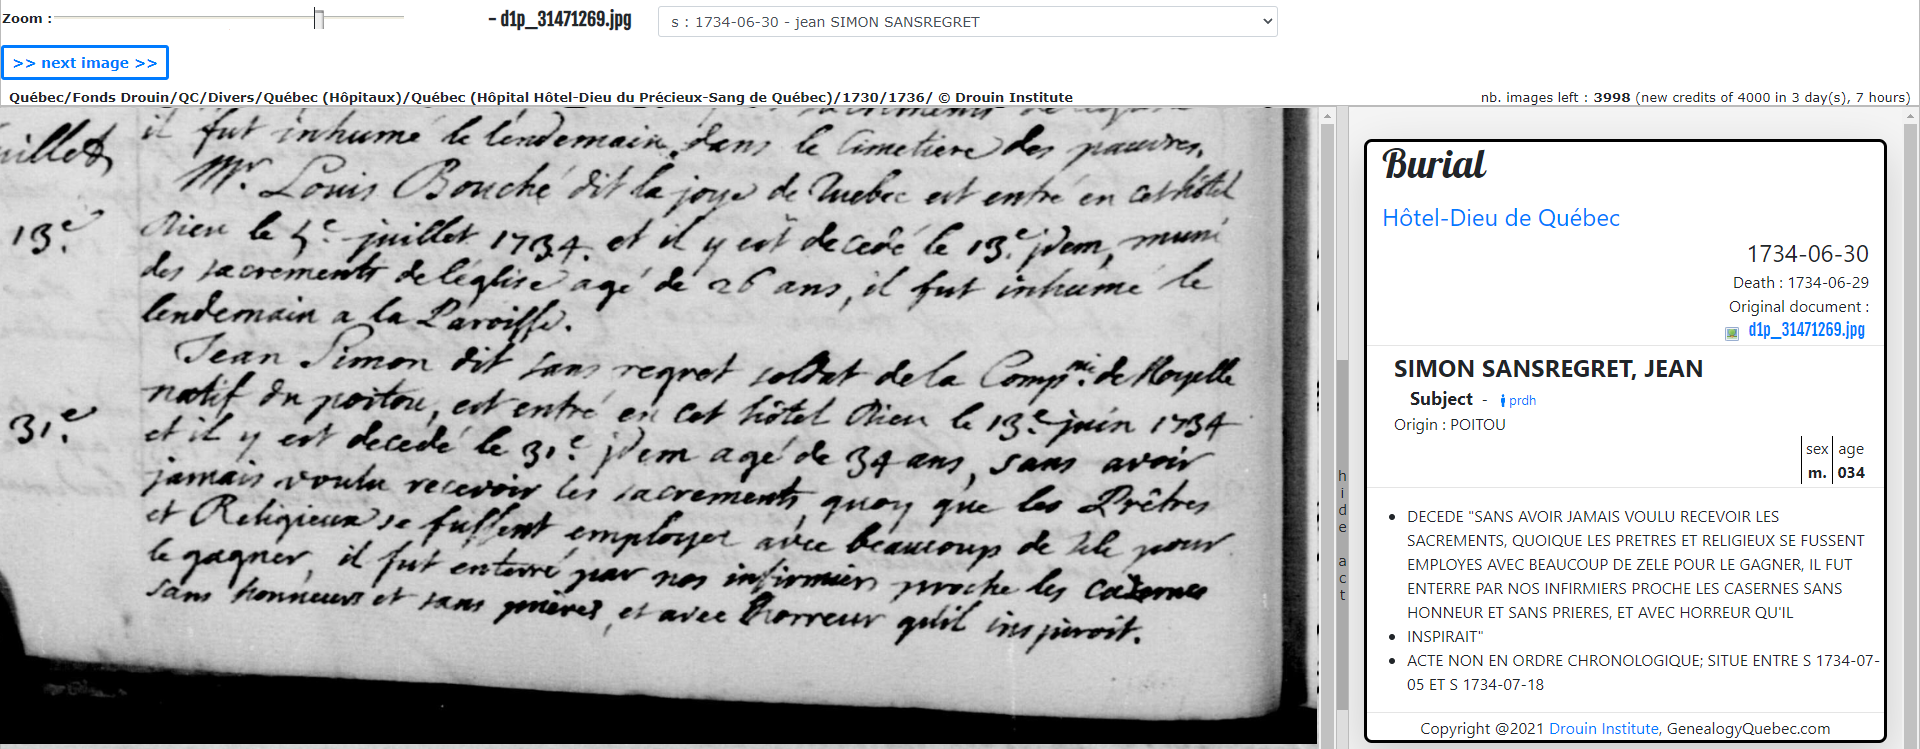 Zoom :
- d1p_31471269.jpg
s : 1734-06-30 - jean SIMON SANSREGRET
>> next image >>
Québec/Fonds Drouin/QC/Divers/Québec (Hôpitaux)/Québec (Hôpital Hôtel-Dieu du Précieux-Sang de Québec)/1730/1736/ © Drouin Institute
nb. images left : 3998 (new credits of 4000 in 3 day(s), 7 hours)
il fut inhumé le lendemain dans le Cimetiere des pauvres.
Mr. Louis Bouché dit la joye de Quebec est entré en cet hôtel
13e. Dieu le 5e juillet 1734. et il y est decedé le 13e. jdem, muni
des sacrements de léglise agé de 26 ans, il fut inhumé le
lendemain a la Paroisse.
Jean Simon dit sans regret soldat de la Compnie. de
natif du poitou, est entré en cet hôtel Dieu le 13e. juin 1734
31e. et il y est decedé le 31e. jdem agé de 34 ans, sans avoir
jamais voulu recevoir les sacrements, quoy que les Prêtres
et Religieux se fussent employer avec beaucoup de zele pour
le gagner, il fut énterré par nos infirmiers proche les casernes
sans honneurs et sans prières, et avec l'horreur qu'il inspiroit.
hide act
Burial
Hôtel-Dieu de Québec
1734-06-30
Death : 1734-06-29
Original document :
d1p_31471269.jpg
SIMON SANSREGRET, JEAN
Subject - prdh
Origin : POITOU
sex age
m. 034
• DECEDE "SANS AVOIR JAMAIS VOULU RECEVOIR LES
SACREMENTS, QUOIQUE LES PRETRES ET RELIGIEUX SE FUSSENT
EMPLOYES AVEC BEAUCOUP DE ZELE POUR LE GAGNER, IL FUT
ENTERRE PAR NOS INFIRMIERS PROCHE LES CASERNES SANS
HONNEUR ET SANS PRIERES, ET AVEC HORREUR QU'IL
• INSPIRAIT"
• ACTE NON EN ORDRE CHRONOLOGIQUE; SITUE ENTRE S 1734-07-
05 ET S 1734-07-18
Copyright @2021 Drouin Institute, GenealogyQuebec.com